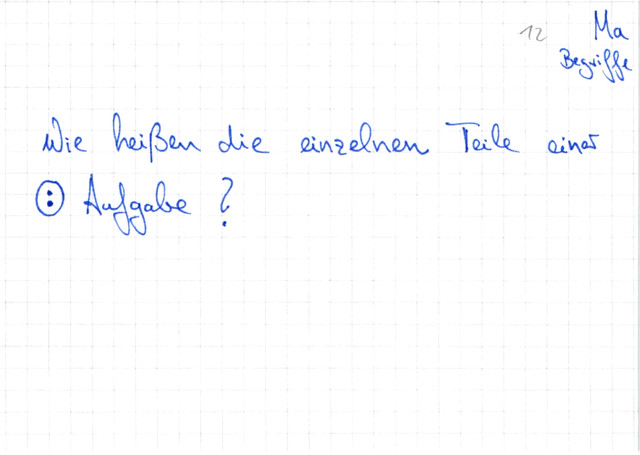 12 Ma
Begriffe
Wie heißen die einzelnen Teile einer
: Aufgabe?